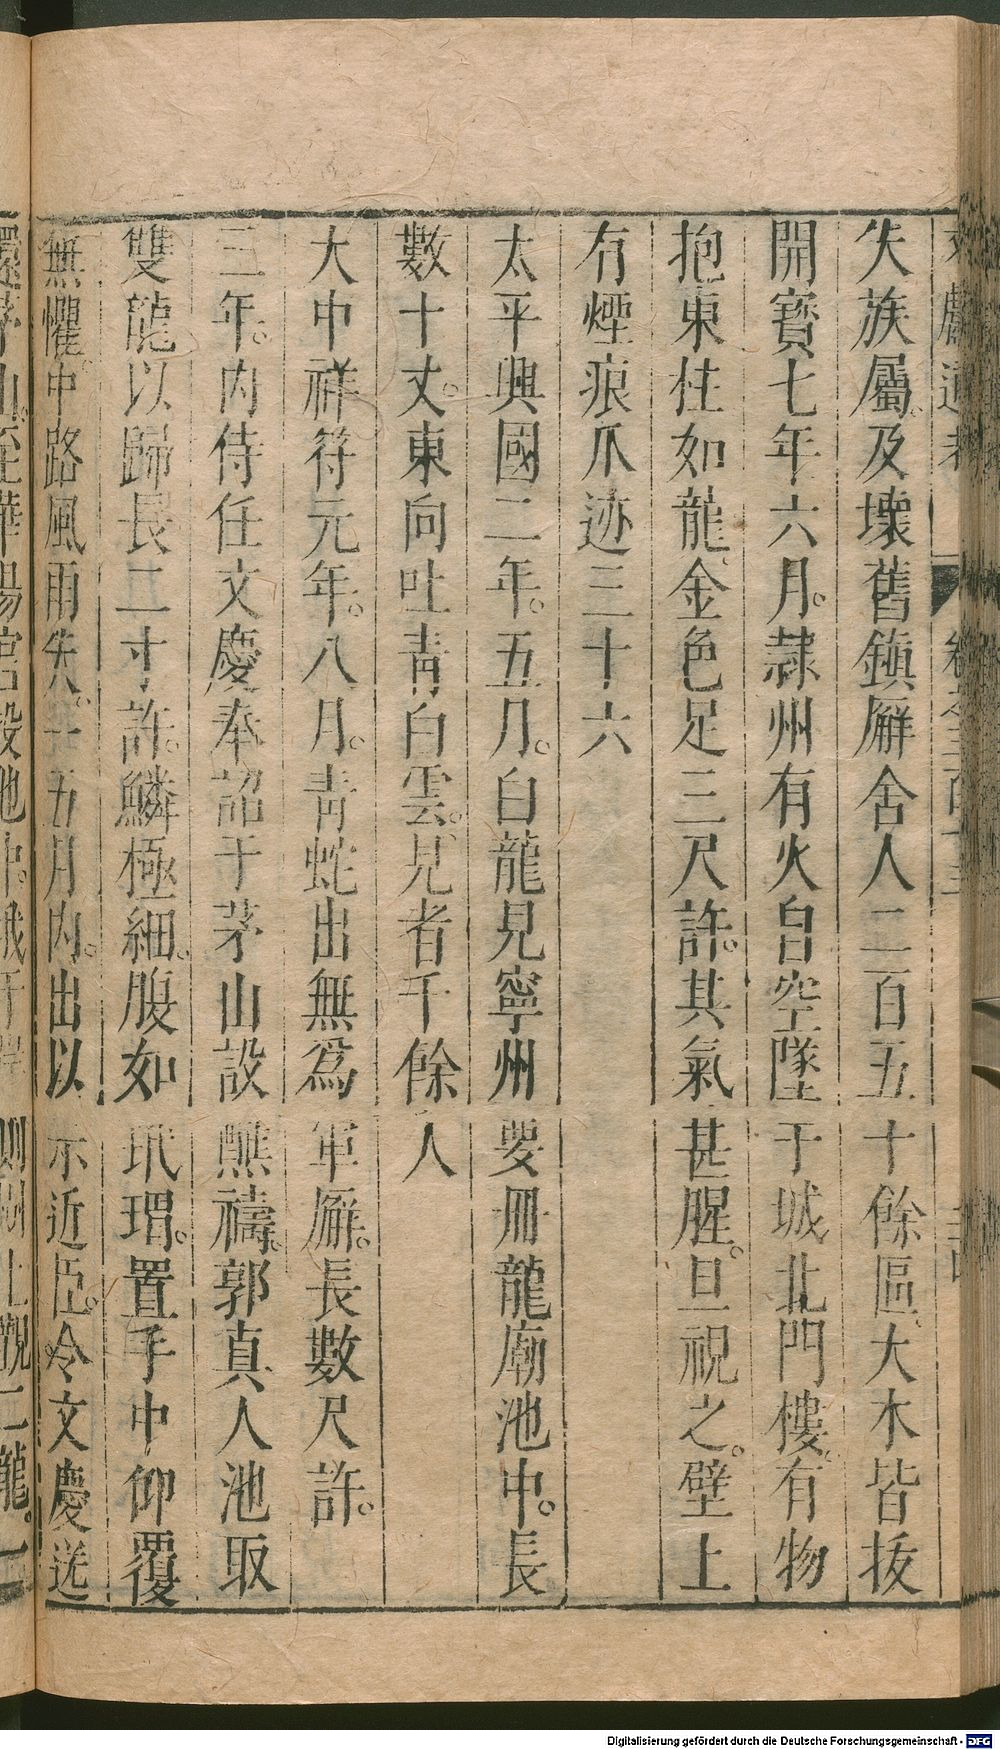 失族屬。及壞舊鎮廨舍人二百五十餘區。大木皆拔
開寶七年六月。隸州有火自空墜于城北門樓。有物
抱東柱如龍。金色足三尺許。其氣甚腥。旦視之。壁上
有煙痕爪迹三十六
太平興國二年。五月。白龍見寧州要冊龍廟池中。長
數十丈。東向吐青白雲。見者千餘人
大中祥符元年。八月。青蛇出無為軍廨。長數尺許。
三年。內侍任文慶奉詔于茅山設醮禱。郭真人池取
雙龍以歸長二寸許。鱗極細。腹如玳瑁。置手中仰覆
無懼。中路風雨失一五月內。出以示近臣。令文慶送
Digitalisierung gefördert durch die Deutsche Forschungsgemeinschaft - DFG